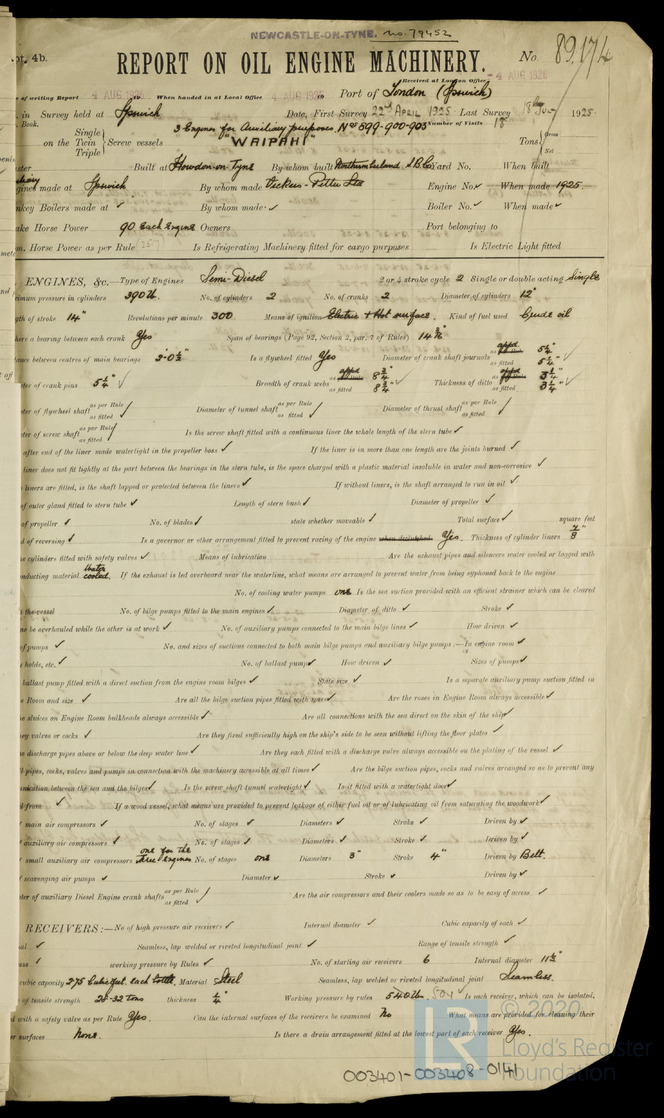 NEWCASTLE-ON-TYNE. No. 79452
pt. 4b. REPORT ON OIL ENGINE MACHINERY. No. 89174
Received at London Office 4 AUG 1925
e of writing Report 4 AUG When handed in at Local Office 4 AUG Port of London (Ipswich)
in Survey held at Ipswich Date, First Survey 22nd APRIL 1925 Last Survey 1925
Book. Number of Visits 18
3 Engines for Auxiliary purposes Nos 899-900-903
Single
on the Twin Screw vessels "WAIPAHI" Tons Gross Net
Triple
Built at Howdon-on-Tyne By whom built Northumberland S.B.Co Yard No. When built
gines made at Ipswich By whom made Vickers-Petters Ltd Engine No. ✓ When made 1925
nkey Boilers made at ✓ By whom made ✓ Boiler No. ✓ When made ✓
ake Horse Power 90 Each Engine Owners Port belonging to
m. Horse Power as per Rule Is Refrigerating Machinery fitted for cargo purposes Is Electric Light fitted
ENGINES, &c.—Type of Engines Semi-Diesel 2 or 4 stroke cycle 2 Single or double acting Single
ximum pressure in cylinders 390 lb. No. of cylinders 2 No. of cranks 2 Diameter of cylinders 12"
gth of stroke 14" Revolutions per minute 300 Means of ignition Electric + Hot surface. Kind of fuel used Crude oil
here a bearing between each crank Yes Span of bearings (Page 92, Section 2, par. 7 of Rules) 14 3/16"
ance between centres of main bearings 2'-0½" Is a flywheel fitted Yes Diameter of crank shaft journals appd 5¼" as fitted 5¼" ✓
ter of crank pins 5¼" ✓ Breadth of crank webs appd 8¾" as fitted 8¾" ✓ Thickness of ditto appd 3¼" as fitted 3¼" ✓
ter of flywheel shaft as per Rule as fitted ✓ Diameter of tunnel shaft as per Rule as fitted ✓ Diameter of thrust shaft as per Rule as fitted ✓
ter of screw shaft as per Rule as fitted ✓ Is the screw shaft fitted with a continuous liner the whole length of the stern tube ✓
after end of the liner made watertight in the propeller boss ✓ If the liner is in more than one length are the joints burned ✓
liner does not fit tightly at the part between the bearings in the stern tube, is the space charged with a plastic material insoluble in water and non-corrosive ✓
liners are fitted, is the shaft lapped or protected between the liners ✓ If without liners, is the shaft arranged to run in oil ✓
of outer gland fitted to stern tube ✓ Length of stern bush ✓ Diameter of propeller ✓
of propeller ✓ No. of blades ✓ state whether moveable ✓ Total surface ✓ square feet
d of reversing ✓ Is a governor or other arrangement fitted to prevent racing of the engine when declutched Yes. Thickness of cylinder liners 7/8"
e cylinders fitted with safety valves ✓ Means of lubrication Are the exhaust pipes and silencers water cooled or lagged with
nducting material Water cooled. If the exhaust is led overboard near the waterline, what means are arranged to prevent water from being syphoned back to the engine
No. of cooling water pumps one Is the sea suction provided with an efficient strainer which can be cleared
the vessel No. of bilge pumps fitted to the main engines ✓ Diameter of ditto ✓ Stroke ✓
ne be overhauled while the other is at work ✓ No. of auxiliary pumps connected to the main bilge lines ✓ How driven ✓
of pumps ✓ No. and sizes of suctions connected to both main bilge pumps and auxiliary bilge pumps :—In engine room ✓
holds, etc. ✓ No. of ballast pumps ✓ How driven ✓ Sizes of pumps ✓
ballast pump fitted with a direct suction from the engine room bilges ✓ State size ✓ Is a separate auxiliary pump suction fitted in
e Room and size ✓ Are all the bilge suction pipes fitted with roses ✓ Are the roses in Engine Room always accessible ✓
e sluices on Engine Room bulkheads always accessible ✓ Are all connections with the sea direct on the skin of the ship ✓
ey valves or cocks ✓ Are they fixed sufficiently high on the ship's side to be seen without lifting the floor plates ✓
e discharge pipes above or below the deep water line ✓ Are they each fitted with a discharge valve always accessible on the plating of the vessel ✓
l pipes, cocks, valves and pumps in connection with the machinery accessible at all times ✓ Are the bilge suction pipes, cocks and valves arranged so as to prevent any
nication between the sea and the bilges ✓ Is the screw shaft tunnel watertight ✓ Is it fitted with a watertight door ✓
d from ✓ If a wood vessel, what means are provided to prevent leakage of either fuel oil or of lubricating oil from saturating the woodwork ✓
main air compressors ✓ No. of stages ✓ Diameters ✓ Stroke ✓ Driven by ✓
auxiliary air compressors ✓ No. of stages ✓ Diameters ✓ Stroke ✓ Driven by ✓
small auxiliary air compressors one for the three engines No. of stages one Diameters 3" Stroke 4" Driven by Belt.
scavenging air pumps ✓ Diameter ✓ Stroke ✓ Driven by ✓
ter of auxiliary Diesel Engine crank shafts as per Rule as fitted ✓ Are the air compressors and their coolers made so as to be easy of access ✓
RECEIVERS:—No of high pressure air receivers ✓ Internal diameter ✓ Cubic capacity of each ✓
al ✓ Seamless, lap welded or riveted longitudinal joint ✓ Range of tensile strength ✓
ess ✓ working pressure by Rules ✓ No. of starting air receivers 6 Internal diameter 11½"
ubic capacity 2.75 Cubic feet. each bottle. Material Steel Seamless, lap welded or riveted longitudinal joint Seamless.
of tensile strength 28-32 tons thickness ¼" Working pressure by rules 540 lb. Is each receiver, which can be isolated,
d with a safety valve as per Rule Yes. Can the internal surfaces of the receivers be examined No What means are provided for cleaning their
r surfaces None. Is there a drain arrangement fitted at the lowest part of each receiver Yes.
© 2020
LR Lloyd's Register Foundation
003401-003408-0141